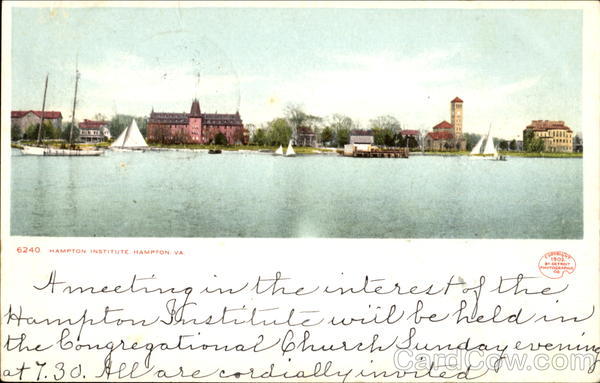 6240 HAMPTON INSTITUTE, HAMPTON, VA.
COPYRIGHT
1902
BY DETROIT
PHOTOGRAPHIC
CO.
A meeting in the interest of the
Hampton Institute will be held in
the Congregational Church Sunday evening
at 7.30. All are cordially invited
CardCow.com